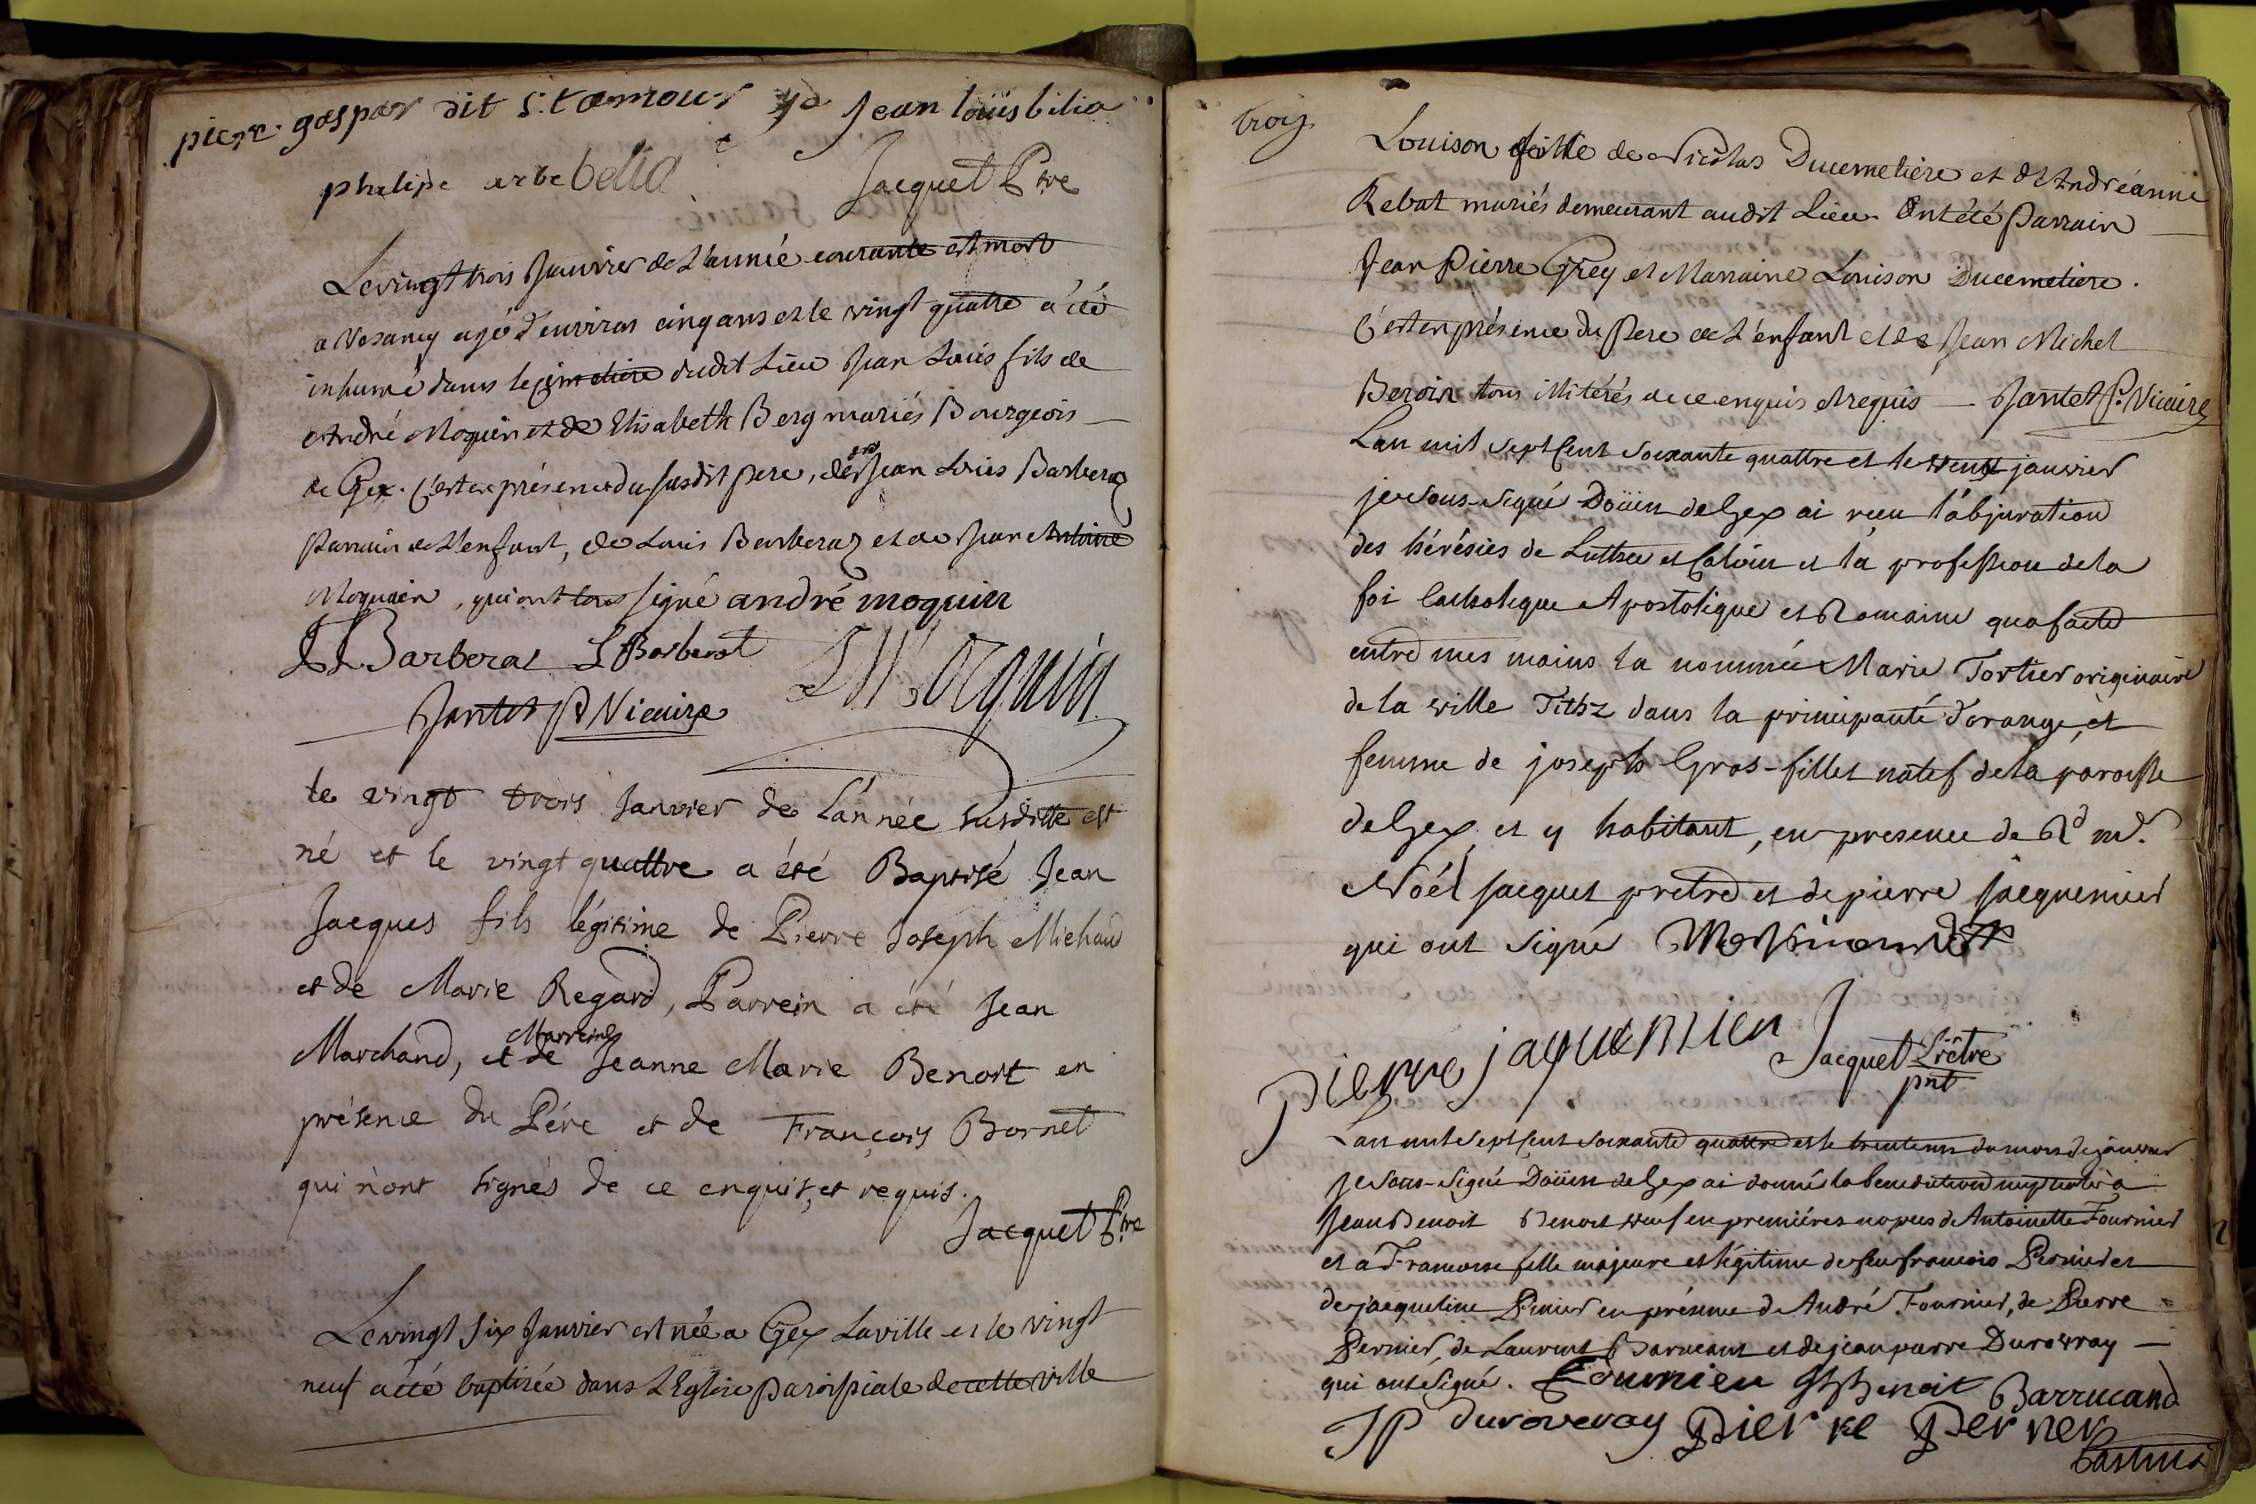 pierre gaspar dit St amour Jean loüis bilia
phelipe arbe bellia Jacquet Ptre
Le vingt trois Janvier de L'année courante est mort
a Vesancy agé d'environ cinq ans et le vingt quatre a été
inhumé dans le cimetiere dudit Lieu Jean Loüis fils de
André Moquin et de Elisabeth Berg mariés Bourgeois
de Gex. C'est en présence du susdit pere, de Jean Loüis Barberaz
Parrain de L'enfant, de Louis Barberaz et de Jean Antoine
Moquain, qui ont tous signé andré moquin
JL Barberat L Barberat Moquin
Jantet P. Vicaire
le vingt trois Janvier de L'année susditte est
né et le vingt quattre a été Baptisé Jean
Jacques fils légitime de Pierre Joseph Michaud
et de Marie Regard, Parrein a été Jean
Marchand, et de Marreine Jeanne Marie Benoit en
présence du Pére et de François Bornet
qui n'ont signés de ce enquis, et requis.
Jacquet Ptre
Le vingt six Janvier est née a Gex La ville et le vingt
neuf a été baptisée dans L'Eglise paroissiale de cette ville
trois
Louison fille de Nicolas Ducemetiere et d'Andréanne
Rebat mariés demeurant audit Lieu. Ont été Parrain
Jean Pierre Grey et Marraine Louison Ducemetiere.
C'est en présence du Pere de L'enfant et de Jean Michel
Beroin tous illitérés de ce enquis et requis Jantet P. Vicaire
L'an mil sept Cent soixante quattre et le janvier
je sous-signé Doüen de Gex ai reçu l'abjuration
des hérésies de Luther et Calvin et la profession de la
foi Catholique Apostolique et Romaine qu'a faitte
entre mes mains la nommée Marie Tortier originaire
de la ville Tithz dans la principauté d'orange, et
femme de joseph Gros-fillet natif de la paroisse
de Gex, et y habitant, en presence de Rd mr.
Noël Jacquet prêtre et de pierre jacquenier
qui ont signé
pierre jaquenier Jacquet Prêtre
pnt
L'an mil sept Cent soixante quattre et le trente un du mois de janvier
je sous-signé Doüen de Gex ai donné la benediction nuptiale à
Jean Benoit Benoit veuf en premiéres nopces de Antoinette Fournier
et à Francoise fille majeure et légitime de feu francois Pernier et
de jacqueline Pinier en présence de André Fournier, de Pierre
Pernier, de Laurent Barucant et de jean pierre Durovray
qui ont signé. Fournier JB Benoit Barrucand
JP duroveray Pierre Perner